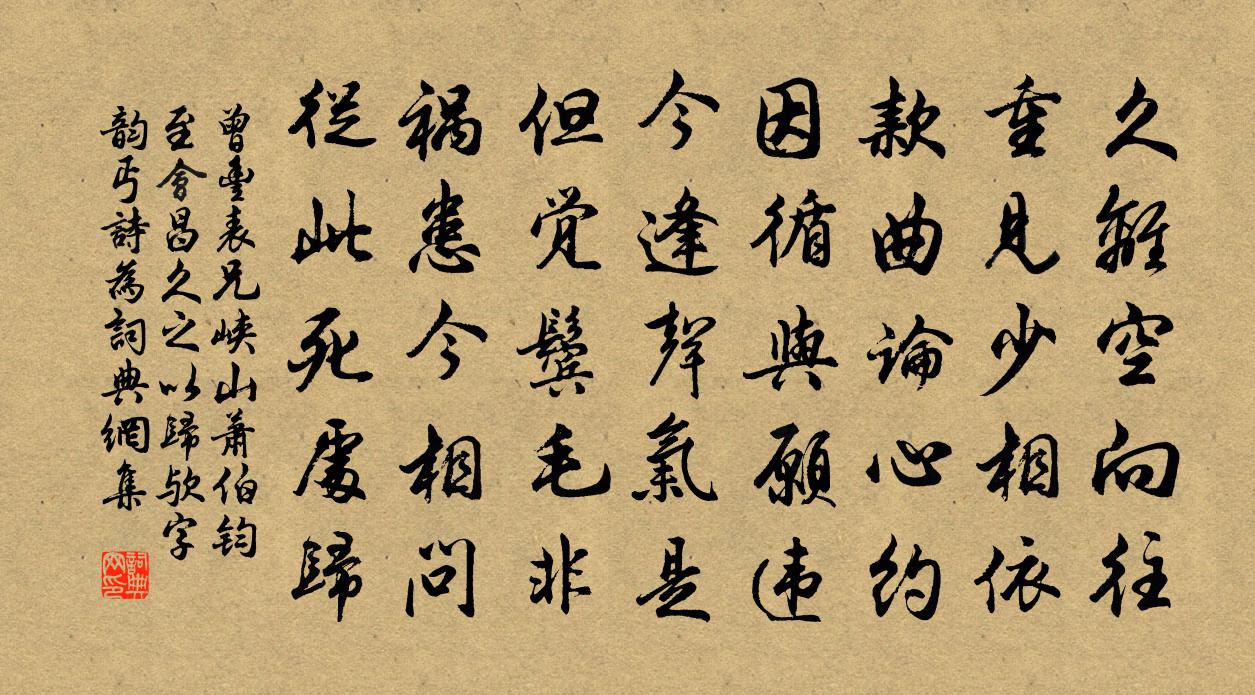 久離空向往
重見少相依
款曲論心約
因循與願违
今逢聲氣是
但觉鬓毛非
祸患今相問
從此死處歸
曾豐表兄峡山萧伯钧
至會昌久之以歸欤字
韵丐詩為詞典網集
詞典网印